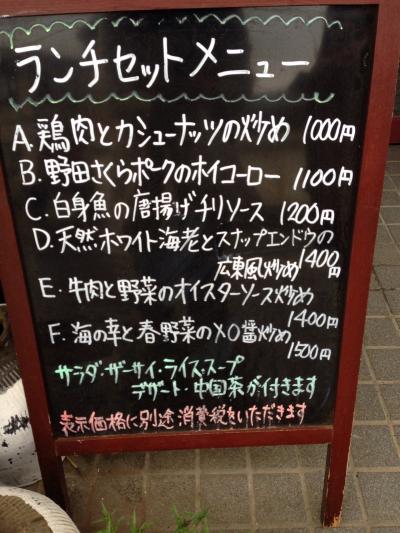 ランチセットメニュー
A.鶏肉とカシューナッツの炒め 1000円
B.野田さくらポークのホイコーロー 1100円
C.白身魚の唐揚げチリソース 1200円
D.天然ホワイト海老とスナップエンドウの
広東風炒め 1400円
E.牛肉と野菜のオイスターソース炒め
1400円
F.海の幸と春野菜のXO醤炒め
1500円
サラダ・ザーサイ・ライス・スープ
デザート・中国茶が付きます
表示価格に別途消費税をいただきます